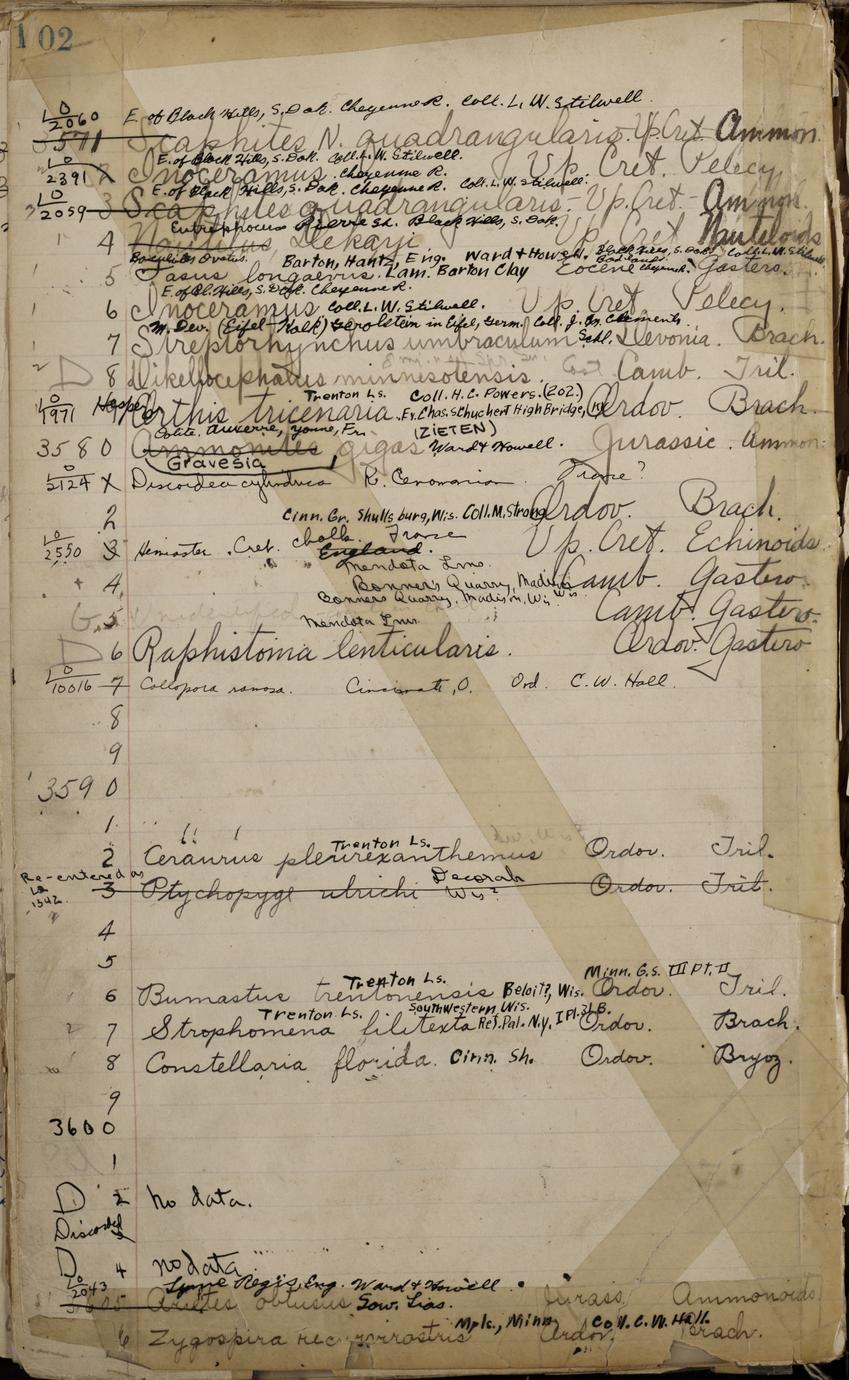 102
10/2060 E. of Black Hills, S. Dak. Cheyenne R. Coll. L. W. Stilwell
3571 Scaphites N. quadrangularis. Up. Cret. Ammon.
E. of Black Hills, S. Dak. Coll. L. W. Stilwell.
10/2391 Inoceramus. Cheyenne R. Up. Cret. Pelecy.
E. of Black Hills, S. Dak. Cheyenne R. Coll. L. W. Stilwell.
10/2059 3 Scaphites quadrangularis - Up. Cret - Ammon.
Eutrephoceras Pierre Sh. Black Hills, S. Dak.
4 Nautilus Dekayi Up. Cret Nautiloids
Baculites Ovatus. Barton, Hants, Eng. Ward & Howell. Black Hills, S. Dak. Coll. L. W. Stilwell
5 Fasus longaevus. Lam. Barton Clay Eocene Cheyenne R. Gasters.
E. of Bl. Hills, S. Dak. Cheyenne R.
6 Inoceramus Coll. L. W. Stilwell. Up. Cret. Pelecy.
M. Dev. (Eifel-Kalk) Gerolstein in Eifel, Germ. Coll. J. M. Clements
7 Streptorhynchus umbraculum Schl. Devonia. Brach.
D 8 Dikellocephalus minnesotensis. Camb. Tril.
Trenton Ls. Coll. H. C. Powers. (202)
10/1971 Hesper Orthis tricenaria. Ex. Chas. Schuchert High Bridge, Ky Ordov. Brach.
Oolite. Auxerre, Yonne, Fr. (ZIETEN)
3580 Ammonites gigas Ward & Howell. Jurassic. Ammon.
Gravesia
10/2124 X Discoidea cylindrica R. Cenomanian France?
2 Cinn. Gr. Shullsburg, Wis. Coll. M. Strong Ordov. Brach.
10/2550 3 Hemiaster. Cret. chalk. France Up. Cret. Echinoids
England.
Mendota Lms.
4 Bonner's Quarry, Madison Wis. Camb. Gastero.
Bonners Quarry, Madison, Wis.
5 Mendota Lms. Camb. Gastero.
D 6 Raphistoma lenticularis. Ordov. Gastero
10/10016 7 Callopora ramosa. Cincinnati, O. Ord. C. W. Hall.
8
9
3590
1
Trenton Ls.
2 Ceraurus pleurexanthemus Ordov. Tril.
Re-entered as 10 1342
Decorah
3 Ptychopyge ulrichi Wis? Ordov. Tril.
4
5
Trenton Ls. Minn. G.S. III Pt. II
6 Bumastus trentonensis Beloit?, Wis. Ordov. Tril.
Trenton Ls. Southwestern Wis.
7 Strophomena filitexta Ref. Pal. N.Y. I Pl. 31B. Ordov. Brach.
8 Constellaria florida. Cinn. Sh. Ordov. Bryoz.
9
3600
1
D 2 no data.
Discorded 3
D 4 no data
10/2043 Lyme Regis, Eng. Ward & Howell.
3605 Arietes obtusus Sow. Lias. Jurass Ammonoids
Mpls., Minn Coll. C. W. Hall.
6 Zygospira recurvirostris Ordov. Brach.